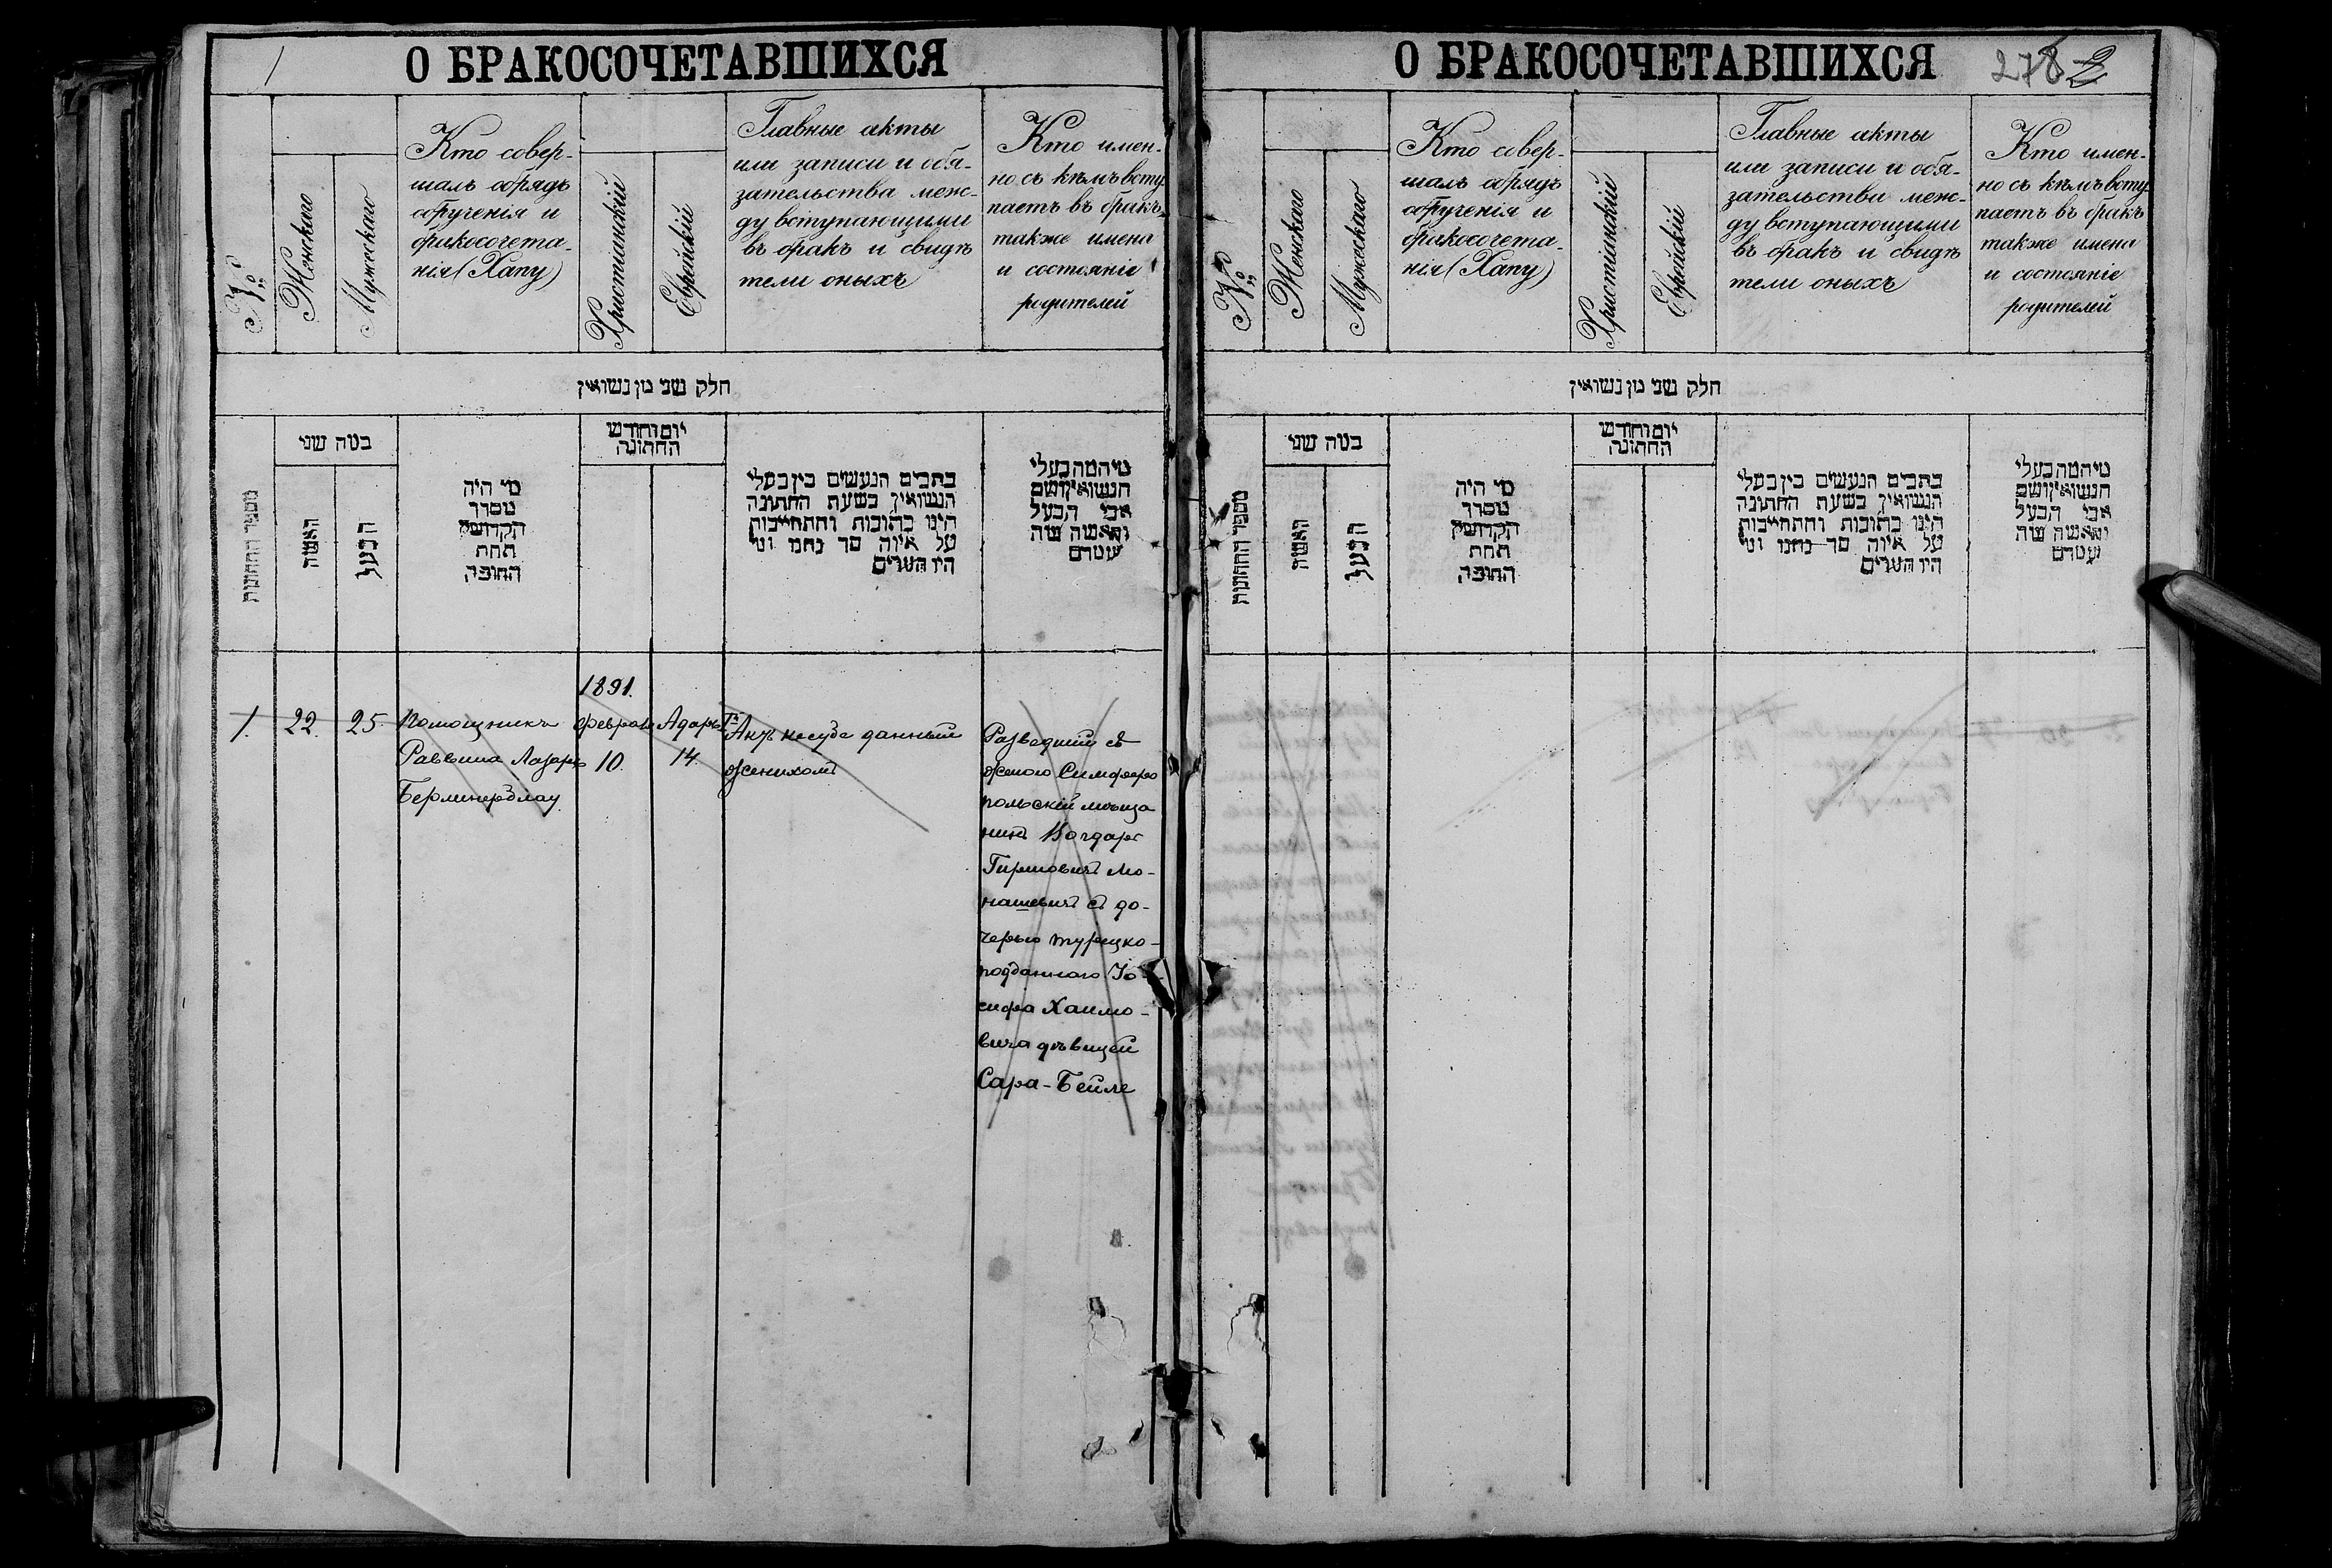 1
О БРАКОСОЧЕТАВШИХСЯ
№
Женскаго
Мужескаго
Кто совер-
шалъ обрядъ
обрученія и
бракосочета-
нія (Хапу)
Христіанскій
Еврейскій
Главные акты
или записи и обя-
зательства меж-
ду вступающими
въ бракъ и свидѣ
тели оныхъ
Кто имен-
но съ кѣмъ всту
паетъ въ бракъ
также имена
и состояніе
родителей
חלק שני מן נשואין
מספר החתונות
במה שני
האשה
הבעל
מי היה
מסדר
הקדושין
תחת
החופה
יום וחודש
החתונה
כתבים הנעשים בין בעלי
הנשואין בשעת החתונה
היינו כתובות והתחייבות
על איזה סך נתנו ומי
היו העדים
מי המה בעלי
הנשואין ושם
אבי הבעל
והאשה ומה
מעמדם
1.
22.
25.
Помощникъ
Раввина Лазарь
Берлинерблау
1891.
Февраля
10.
Адаръ Iй
14.
Актъ кесубе данный
женихомъ
Разведшій съ
женою Симферо
польскій мѣща
нинъ Богдаръ
Гиршовичъ Мо-
нашевичъ съ до-
черью турецко-
подданнаго Іо-
сифа Хаимо-
вича дѣвицей
Сара-Бейле
О БРАКОСОЧЕТАВШИХСЯ
278 2
№
Женскаго
Мужескаго
Кто совер-
шалъ обрядъ
обрученія и
бракосочета-
нія (Хапу)
Христіанскій
Еврейскій
Главные акты
или записи и обя-
зательства меж-
ду вступающими
въ бракъ и свидѣ
тели оныхъ
Кто имен-
но съ кѣмъ всту
паетъ въ бракъ
также имена
и состояніе
родителей
חלק שני מן נשואין
מספר החתונות
במה שני
האשה
הבעל
מי היה
מסדר
הקדושין
תחת
החופה
יום וחודש
החתונה
כתבים הנעשים בין בעלי
הנשואין בשעת החתונה
היינו כתובות והתחייבות
על איזה סך נתנו ומי
היו העדים
מי המה בעלי
הנשואין ושם
אבי הבעל
והאשה ומה
מעמדם